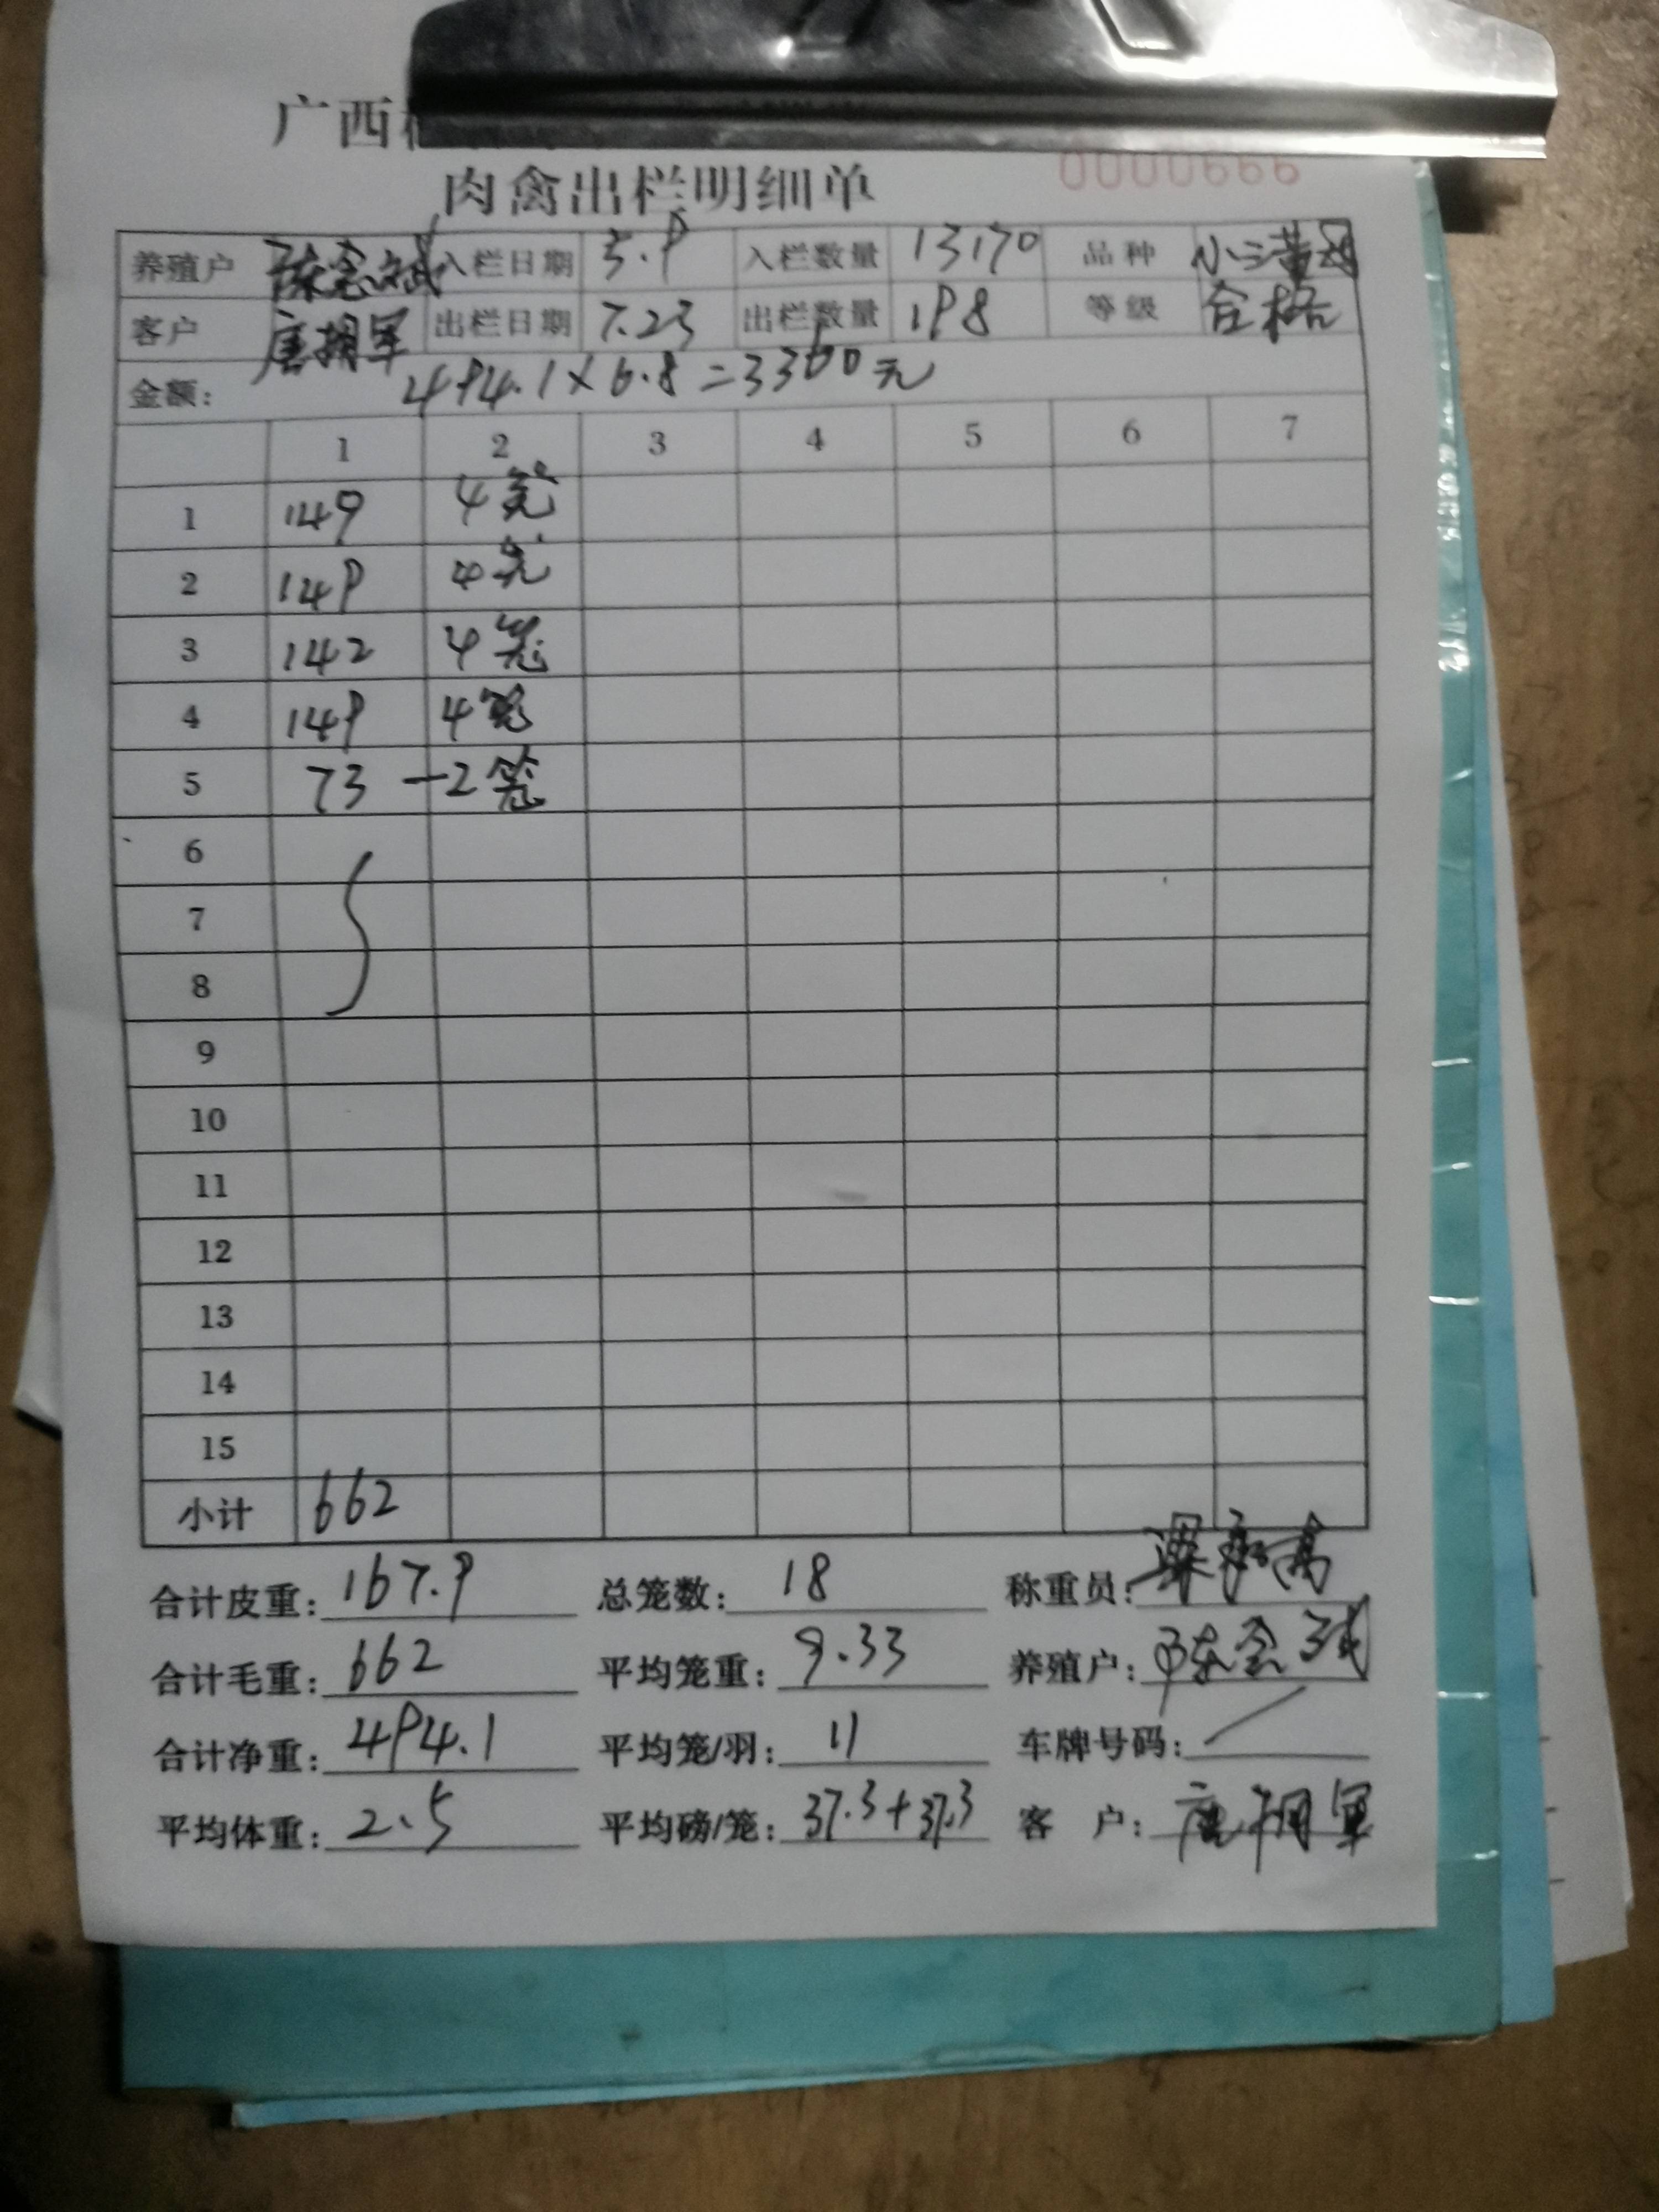 广西
肉禽出栏明细单 0000666
养殖户 入栏日期 5.9 入栏数量 13170 品种
客户 唐拥军 出栏日期 7.23 出栏数量 198 等级 合格
金额: 494.1×6.8=3360元
1 2 3 4 5 6 7
1 149 4笼
2 149 4笼
3 142 4笼
4 149 4笼
5 73 -2笼
6
7
8
9
10
11
12
13
14
15
小计 662
合计皮重: 167.9 总笼数: 18 称重员:
合计毛重: 662 平均笼重: 9.33 养殖户:
合计净重: 494.1 平均笼/羽: 11 车牌号码: /
平均体重: 2.5 平均磅/笼: 37.3+37.3 客 户: 唐拥军